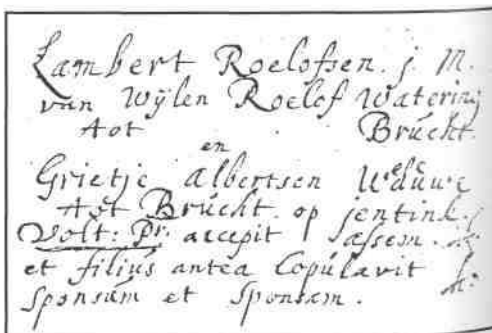 Lambert Roelofsen. j. M.
van Wÿlen Roelof Watering
tot Brúcht.
en
Grietje Albertsen Weduwe
tot Brúcht. op jentink.
Volt: Pr. accepit assem.
et filiús antea Copúlavit
sponsúm et sponsam.